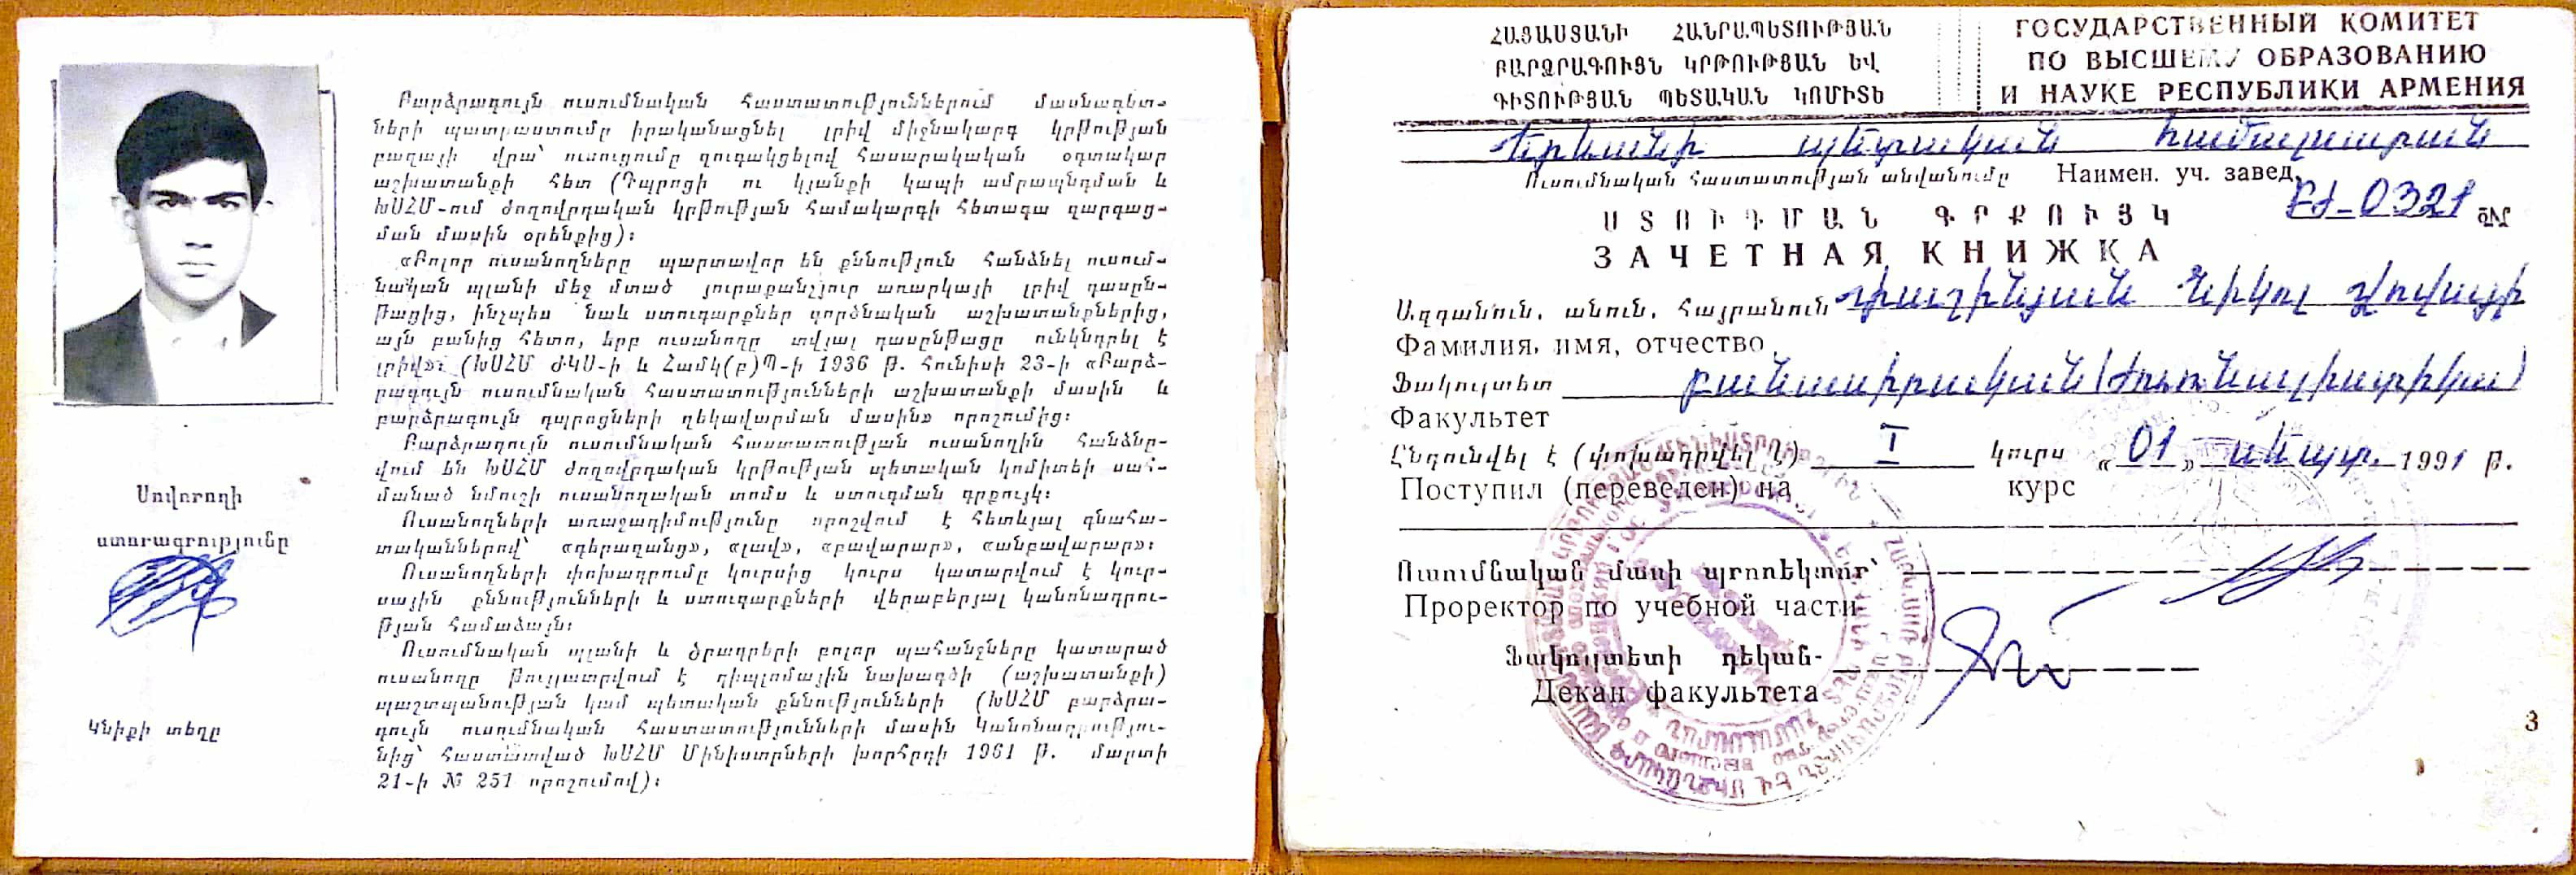 Բարձրագույն ուսումնական հաստատություններում մասնագետ-
ների պատրաստումը իրականացնել լրիվ միջնակարգ կրթության
բազայի վրա՝ ուսուցումը զուգակցելով հասարակական օգտակար
աշխատանքի հետ (Դպրոցի ու կյանքի կապի ամրապնդման և
ԽՍՀՄ-ում ժողովրդական կրթության համակարգի հետագա զարգաց-
ման մասին օրենքից)։
«Բոլոր ուսանողները պարտավոր են քննություն հանձնել ուսում-
նական պլանի մեջ մտած յուրաքանչյուր առարկայի լրիվ դասըն-
թացից, ինչպես նաև ստուգարքներ գործնական աշխատանքներից,
այն բանից հետո, երբ ուսանողը տվյալ դասընթացը ունկնդրել է
լրիվ»։ (ԽՍՀՄ ԺԿՍ-ի և Համկ(բ)Պ-ի 1936 թ. հունիսի 23-ի «Բարձ-
րագույն ուսումնական հաստատությունների աշխատանքի մասին և
բարձրագույն դպրոցների ղեկավարման մասին» որոշումից։
Բարձրագույն ուսումնական հաստատության ուսանողին հանձնը-
վում են ԽՍՀՄ ժողովրդական կրթության պետական կոմիտեի սահ-
մանած նմուշի ուսանողական տոմս և ստուգման գրքույկ։
Ուսանողների առաջադիմությունը որոշվում է հետևյալ գնահա-
տականներով՝ «գերազանց», «լավ», «բավարար», «անբավարար»։
Ուսանողների փոխադրումը կուրսից կուրս կատարվում է կուր-
սային քննությունների և ստուգարքների վերաբերյալ կանոնադրու-
թյան համաձայն։
Ուսումնական պլանի և ծրագրերի բոլոր պահանջները կատարած
ուսանողը թույլատրվում է դիպլոմային նախագծի (աշխատանքի)
պաշտպանության կամ պետական քննությունների (ԽՍՀՄ բարձրա-
գույն ուսումնական հաստատությունների մասին Կանոնադրությու-
նից՝ հաստատված ԽՍՀՄ Մինիստրների խորհրդի 1961 թ. մարտի
21-ի № 251 որոշումով)։
Սովորողի
ստորագրությունը
Կնիքի տեղը
ՀԱՅԱՍՏԱՆԻ ՀԱՆՐԱՊԵՏՈՒԹՅԱՆ
ԲԱՐՁՐԱԳՈՒՅՆ ԿՐԹՈՒԹՅԱՆ ԵՎ
ԳԻՏՈՒԹՅԱՆ ՊԵՏԱԿԱՆ ԿՈՄԻՏԵ
ГОСУДАРСТВЕННЫЙ КОМИТЕТ
ПО ВЫСШЕМУ ОБРАЗОВАНИЮ
И НАУКЕ РЕСПУБЛИКИ АРМЕНИЯ
Երևանի պետական համալսարան
Ուսումնական հաստատության անվանումը Наимен. уч. завед.
ԲԺ-0321 №
ՍՏՈՒԳՄԱՆ ԳՐՔՈՒՅԿ
ЗАЧЕТНАЯ КНИЖКА
Ազգանուն, անուն, հայրանուն Փաշինյան Նիկոլ Վովայի
Фамилия, имя, отчество
Ֆակուլտետ բանասիրական (ժուռնալիստիկա)
Факультет
Ընդունվել է (փոխադրվել է) I կուրս «01» սեպտ. 1991 թ.
Поступил (переведен) на курс
Ուսումնական մասի պրոռեկտոր՝
Проректор по учебной части
Ֆակուլտետի դեկան-
Декан факультета
3